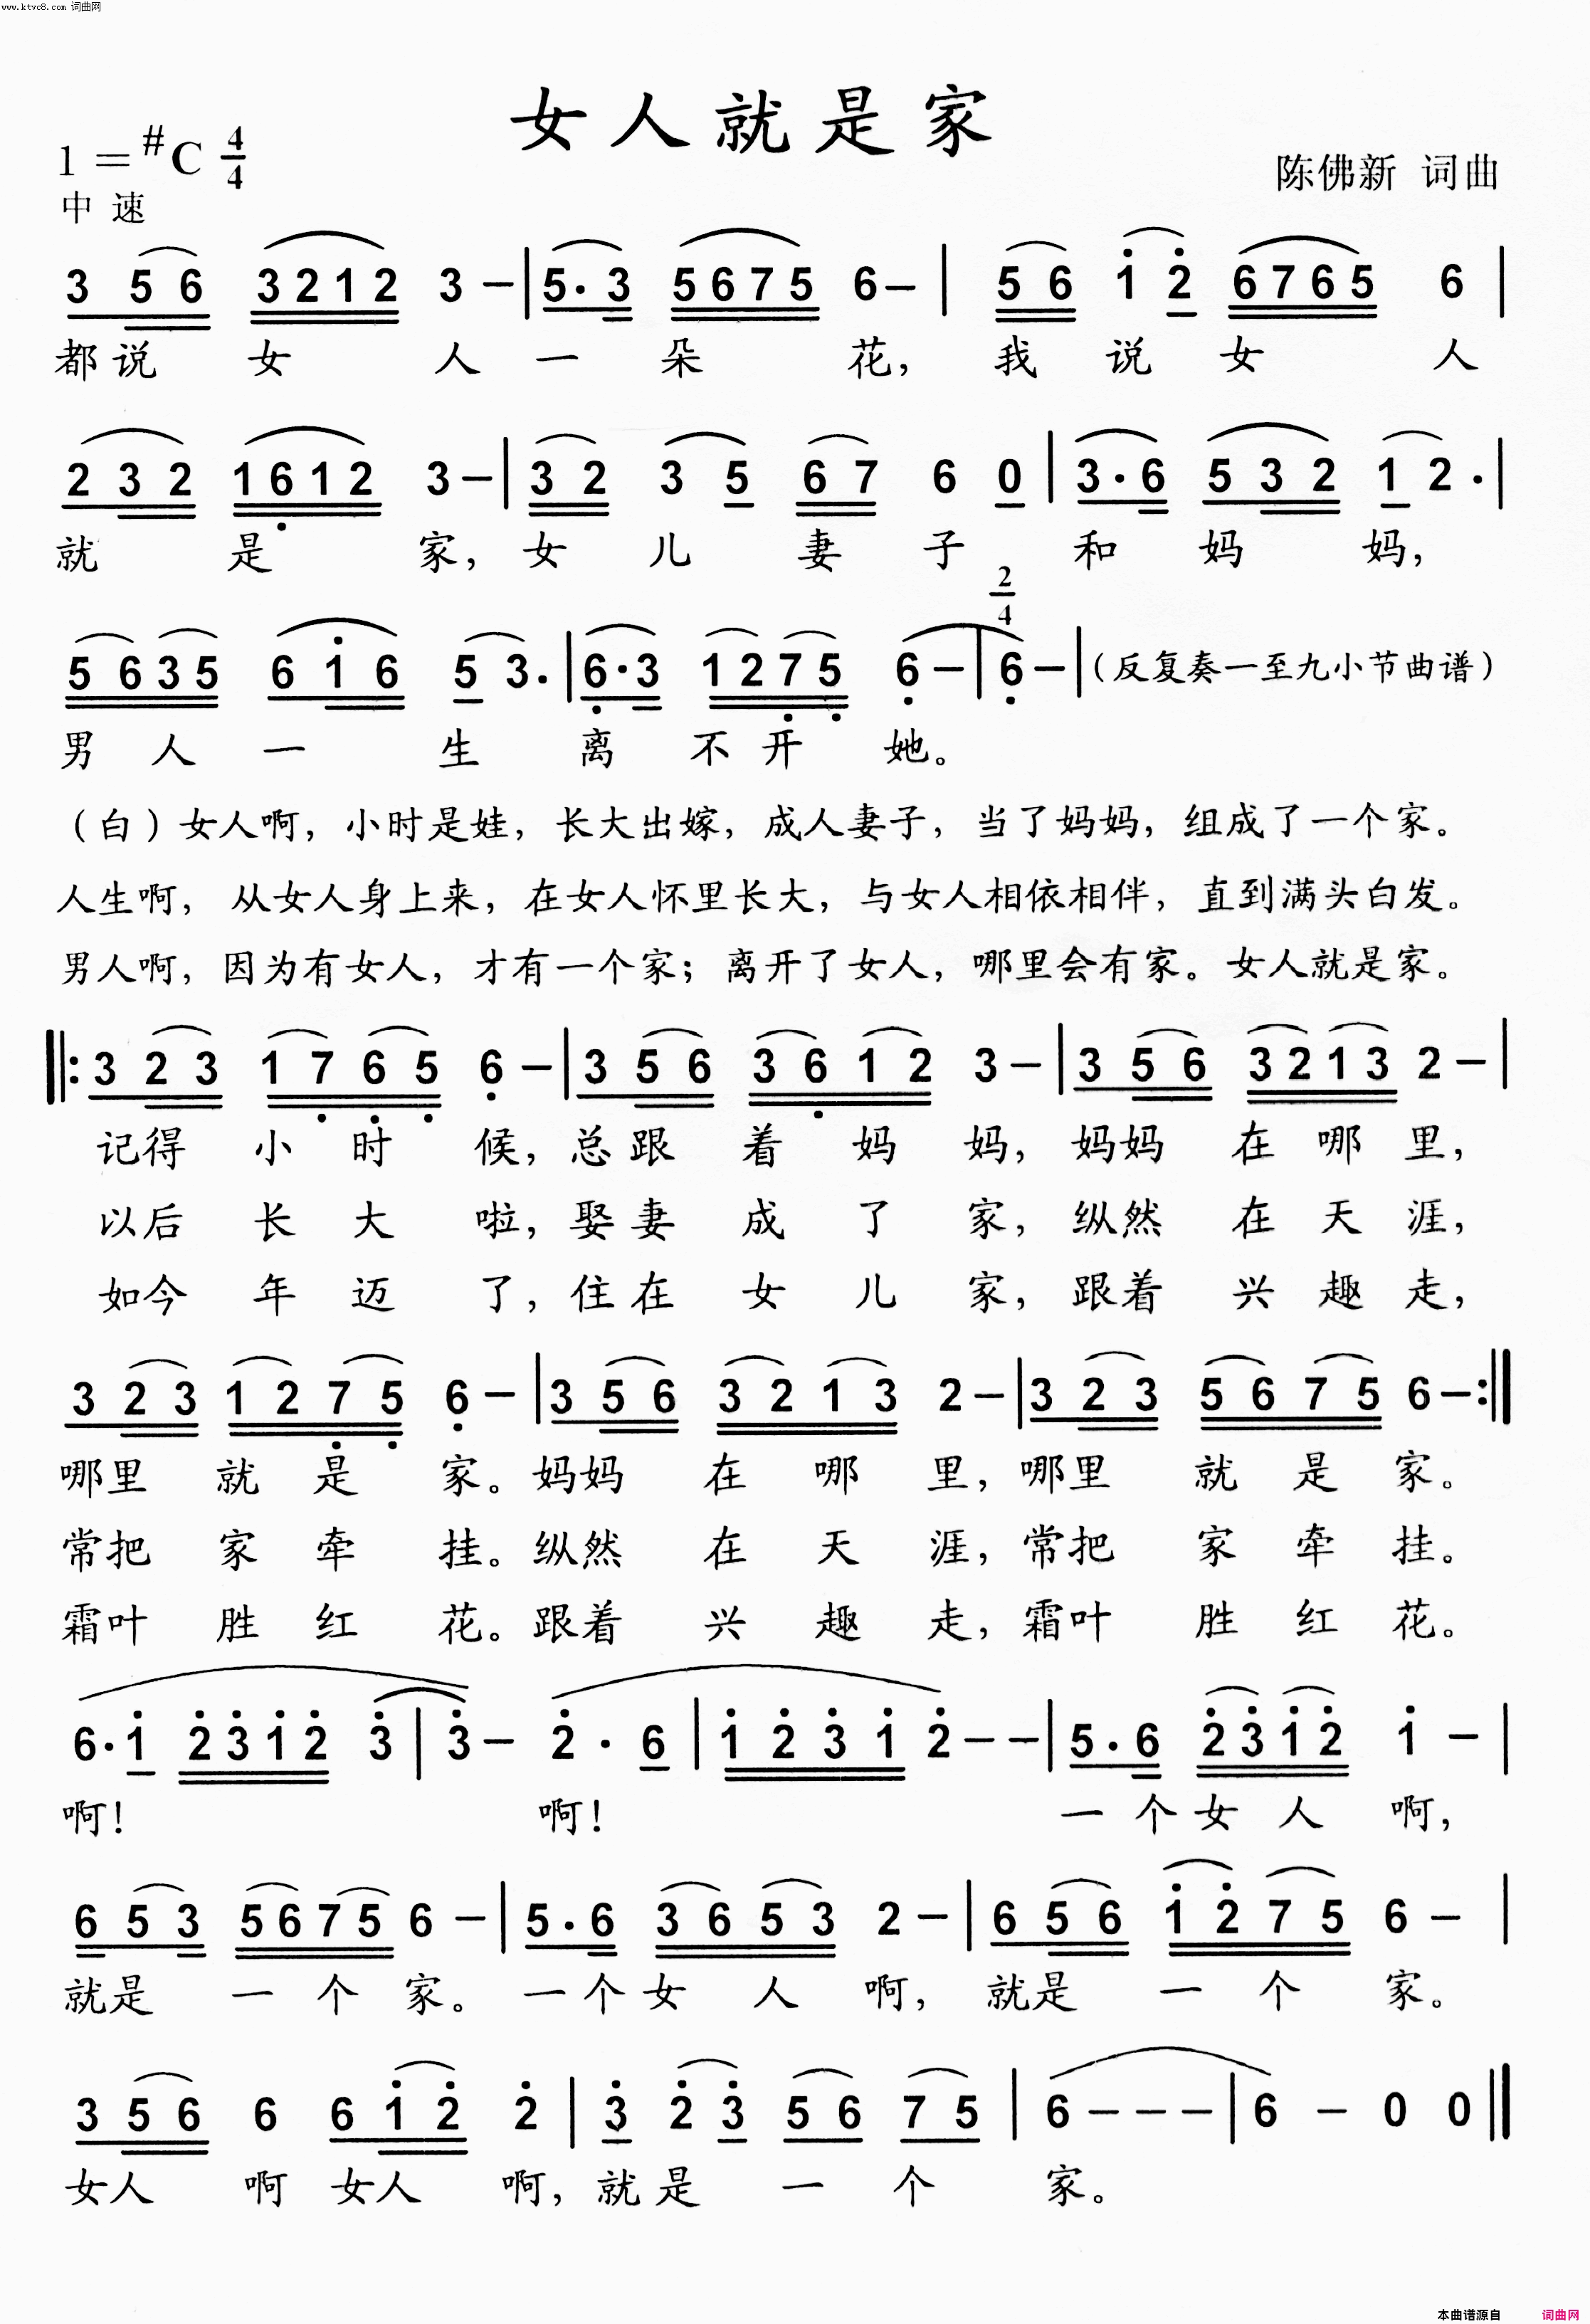 www.ktvc8.com 词曲网
女人就是家
1=#C 4/4
中速
陈佛新 词曲
3 5 6 3 2 1 2 3 - | 5· 3 5 6 7 5 6 - | 5 6 1 2 6 7 6 5 6 |
都说女人一朵花，我说女人
2 3 2 1 6 1 2 3 - | 3 2 3 5 6 7 6 0 | 3· 6 5 3 2 1 2· |
就是家，女儿妻子和妈妈，
2/4
5 6 3 5 6 1 6 5 3· | 6· 3 1 2 7 5 6 - | 6 - | （反复奏一至九小节曲谱）
男人一生离不开她。
（白）女人啊，小时是娃，长大出嫁，成人妻子，当了妈妈，组成了一个家。
人生啊，从女人身上来，在女人怀里长大，与女人相依相伴，直到满头白发。
男人啊，因为有女人，才有一个家；离开了女人，哪里会有家。女人就是家。
‖: 3 2 3 1 7 6 5 6 - | 3 5 6 3 6 1 2 3 - | 3 5 6 3 2 1 3 2 - |
记得小时候，总跟着妈妈，妈妈在哪里，
以后长大啦，娶妻成了家，纵然在天涯，
如今年迈了，住在女儿家，跟着兴趣走，
3 2 3 1 2 7 5 6 - | 3 5 6 3 2 1 3 2 - | 3 2 3 5 6 7 5 6 - :‖
哪里就是家。妈妈在哪里，哪里就是家。
常把家牵挂。纵然在天涯，常把家牵挂。
霜叶胜红花。跟着兴趣走，霜叶胜红花。
6· 1 2 3 1 2 3 | 3 - 2· 6 | 1 2 3 1 2 - - | 5· 6 2 3 1 2 1 - |
啊！啊！一个女人啊，
6 5 3 5 6 7 5 6 - | 5· 6 3 6 5 3 2 - | 6 5 6 1 2 7 5 6 - |
就是一个家。一个女人啊，就是一个家。
3 5 6 6 6 1 2 2 | 3 2 3 5 6 7 5 | 6 - - - | 6 - 0 0 ‖
女人啊女人啊，就是一个家。
本曲谱源自 词曲网